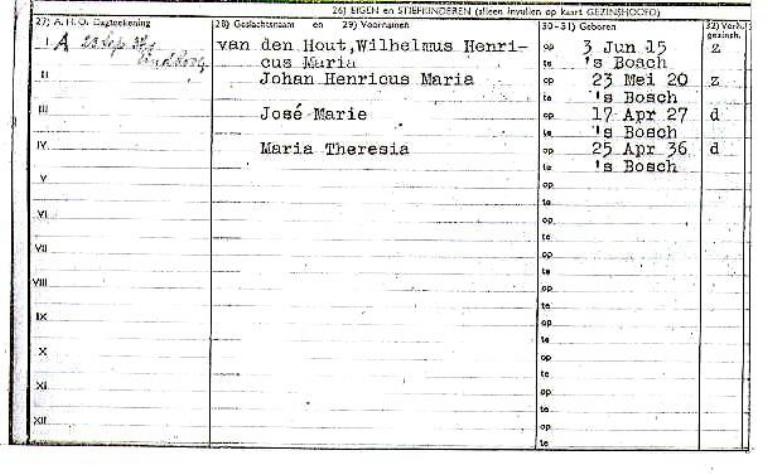 26) EIGEN en STIEFKINDEREN (alleen invullen op kaart GEZINSHOOFD)
27) A. H. O. Dagteekening 28) Geslachtsnaam en 29) Voornamen 30-31) Geboren 32) Verh. gezinsh.
I A 23 Sep 38 van den Hout,Wilhelmus Henri- op 3 Jun 15 z
cus Maria te 's Bosch
II Johan Henricus Maria op 23 Mei 20 z
te 's Bosch
III José Marie op 17 Apr 27 d
te 's Bosch
IV Maria Theresia op 25 Apr 36 d
te 's Bosch
V op
te
VI op
te
VII op
te
VIII op
te
IX op
te
X op
te
XI op
te
XII op
te